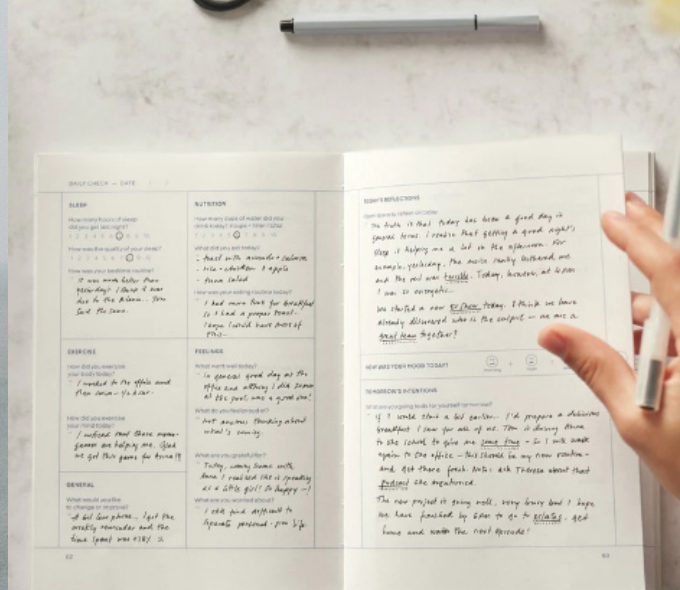 DAILY CHECK — DATE
SLEEP
How many hours of sleep
did you get last night?
How was the quality of your sleep?
How was your bedtime routine?
It was much better than
yesterday!
said the same.
EXERCISE
How did you exercise
your body today?
I walked to the office and
then down - ½ hour.
How did you exercise
your mind today?
I noticed that these
games are helping me. Glad
we got this game for
GENERAL
What would you like
to change or improve?
phone... I got the
weekly reminder and the
time spent was
62
NUTRITION
How many cups of water did your
body drink today?
What did you eat today?
- toast with avocado + salmon
- rice + chicken & apple
- tuna salad
How was your eating routine today?
I had more time for breakfast
so I had a proper toast.
I hope I will have more of
this—
FEELINGS
What went well today?
In general good day at the
office and
was a good one!
What did you feel about?
Not anxious thinking about
what's coming.
What are you grateful for?
Today, coming home with
Anna I realised she is speaking
as a little girl! So happy
What are you worried about?
I still find difficult to
separate personal - pro life.
TODAY'S REFLECTIONS
The truth is that today has been a good day in
general terms. I realise that getting a good night's
sleep is helping me a lot in the afternoon. For
example, yesterday, the noise really bothered me
and the rest was terrible. Today, however, at 10am
I was so energetic...
We started a new tv show today. I think we have
already discovered who is the culprit — we are a
great team together!
HOW WAS YOUR MOOD TODAY?
TOMORROW'S INTENTIONS
What are you going to do for yourself tomorrow?
If I could start a bit earlier... I'd prepare a delicious
breakfast I can for all of us. Tom is driving Anna
to the school to give me some time - so I will walk
again to the office - this should be my new routine -
and get there fresh. Note: ask Theresa about that
podcast she mentioned.
The new project is going well, very busy but I hope
we have finished by 6pm to go to pilates, get
home and watch the next episode!
63